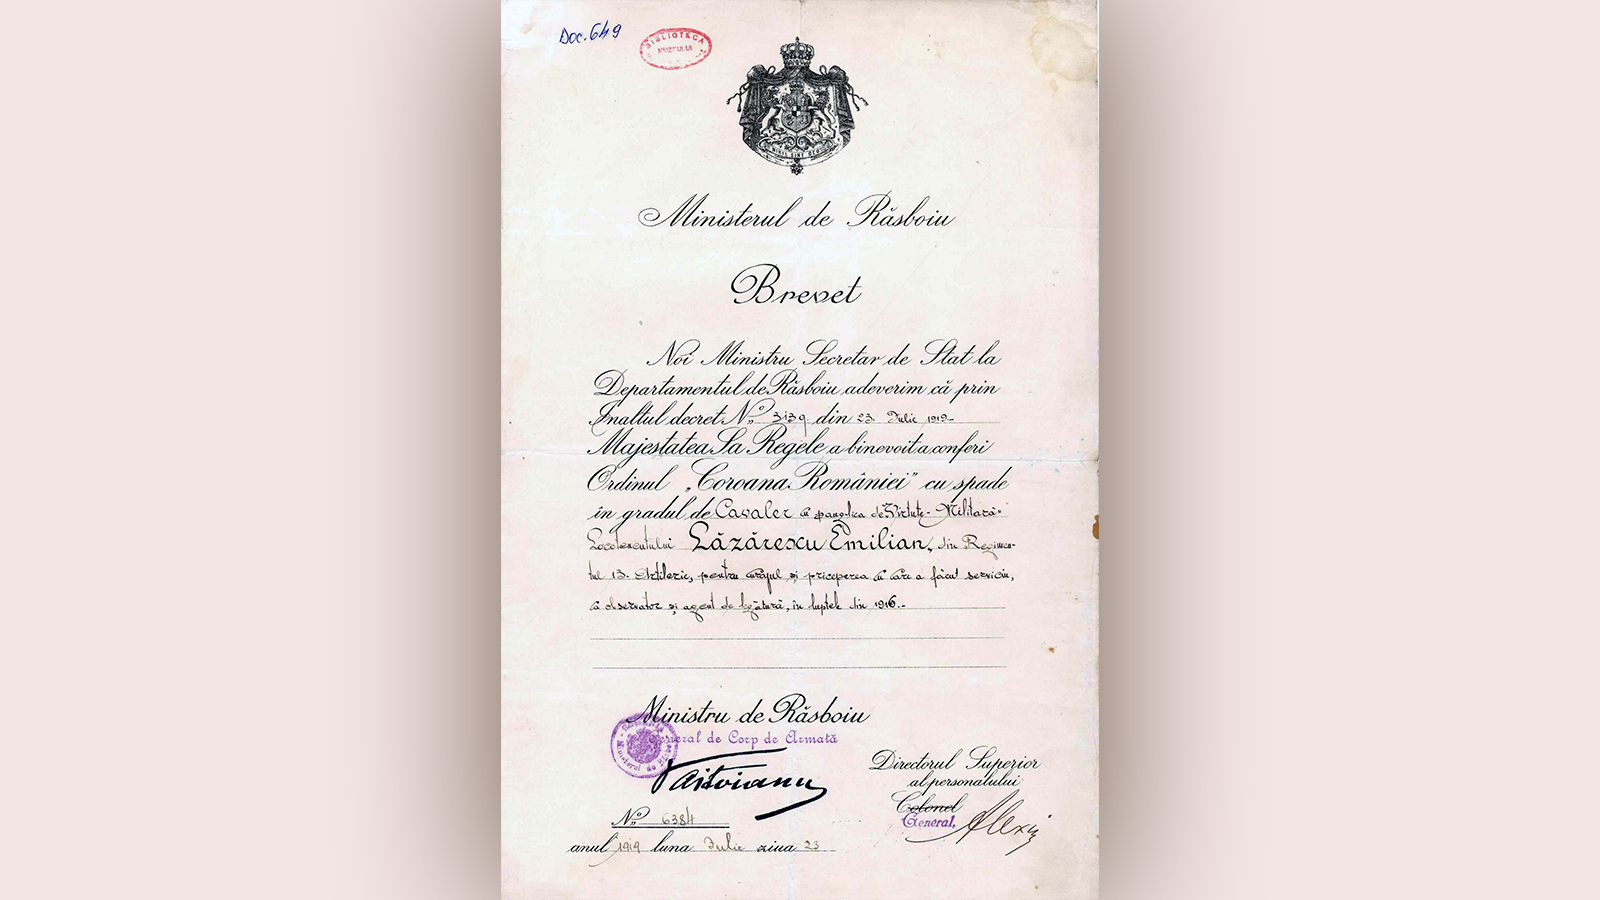 Doc. 649
BIBLIOTECA
MUZEULUI
NIHIL SINE DEO
Ministerul de Răsboiu
Brevet
Noi Ministru Secretar de Stat la
Departamentul de Răsboiu adeverim că prin
Inaltul decret No. 3139 din 23 Iulie 1919-
Majestatea Sa Regele a binevoit a conferi
Ordinul „Coroana României" cu spade
în gradul de Cavaler cu panglica de Virtute-Militară-
Locotenentului Lăzărescu Emilian, din Regimen-
tul 13. Artilerie, pentru curajul și priceperea cu care a făcut serviciu,
ca observator și agent de legătură, în luptele din 1916.-
Ministru de Răsboiu
General de Corp de Armată
Ministerul de
Vaitoianu
Directorul Superior
al personalului
Colonel
General,
No. 6384
anul 1919 luna Iulie ziua 23